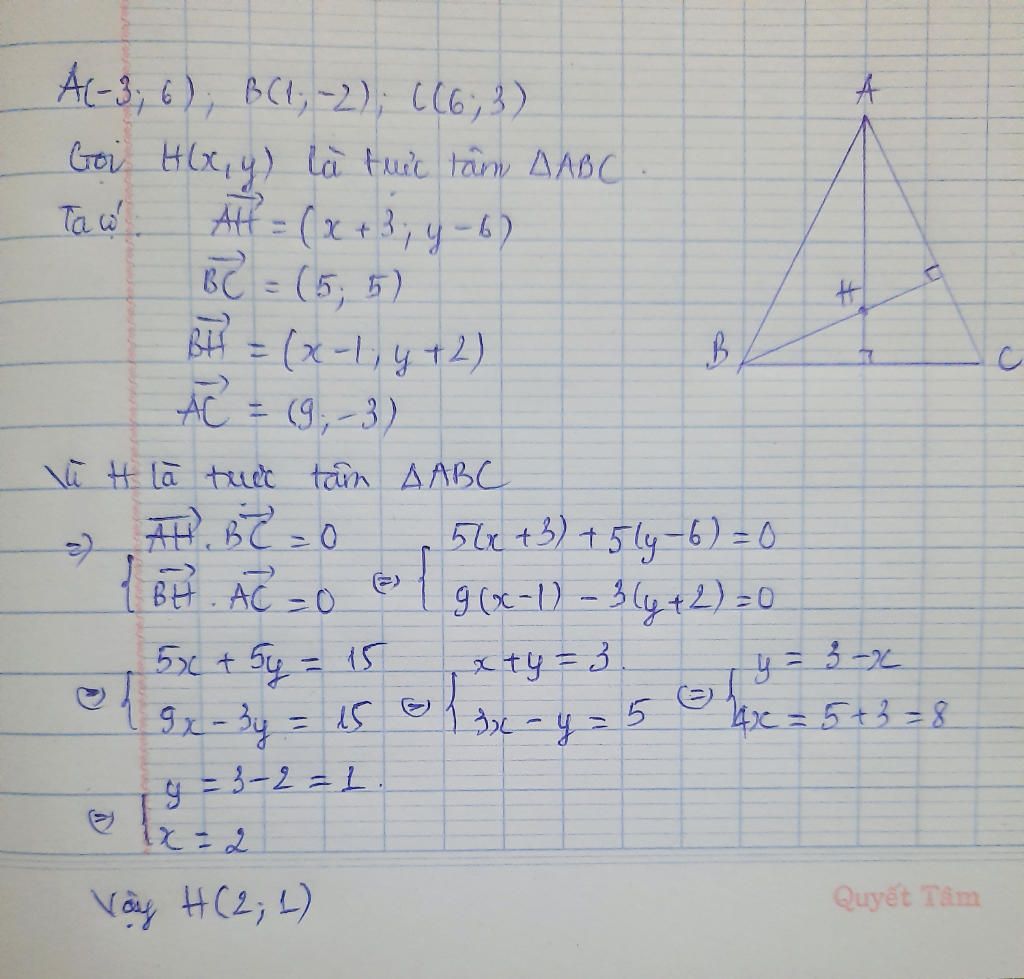 A(-3; 6); B(1; -2); C(6; 3)
Gọi H(x, y) là trực tâm ΔABC.
Ta có: AH = (x + 3; y - 6)
BC = (5; 5)
BH = (x - 1; y + 2)
AC = (9; -3)
Vì H là trực tâm ΔABC
=> { AH . BC = 0 <=> { 5(x + 3) + 5(y - 6) = 0
BH . AC = 0 9(x - 1) - 3(y + 2) = 0
<=> { 5x + 5y = 15 <=> { x + y = 3 <=> { y = 3 - x
9x - 3y = 15 3x - y = 5 4x = 5 + 3 = 8
<=> { y = 3 - 2 = 1.
x = 2
Vậy H(2; 1)
A
H
B
C
Quyết Tâm